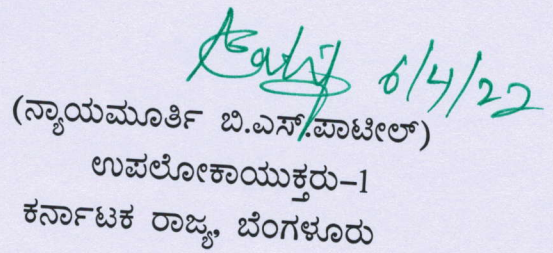 6/4/22
(ನ್ಯಾಯಮೂರ್ತಿ ಬಿ.ಎಸ್.ಪಾಟೀಲ್)
ಉಪಲೋಕಾಯುಕ್ತರು–1
ಕರ್ನಾಟಕ ರಾಜ್ಯ, ಬೆಂಗಳೂರು